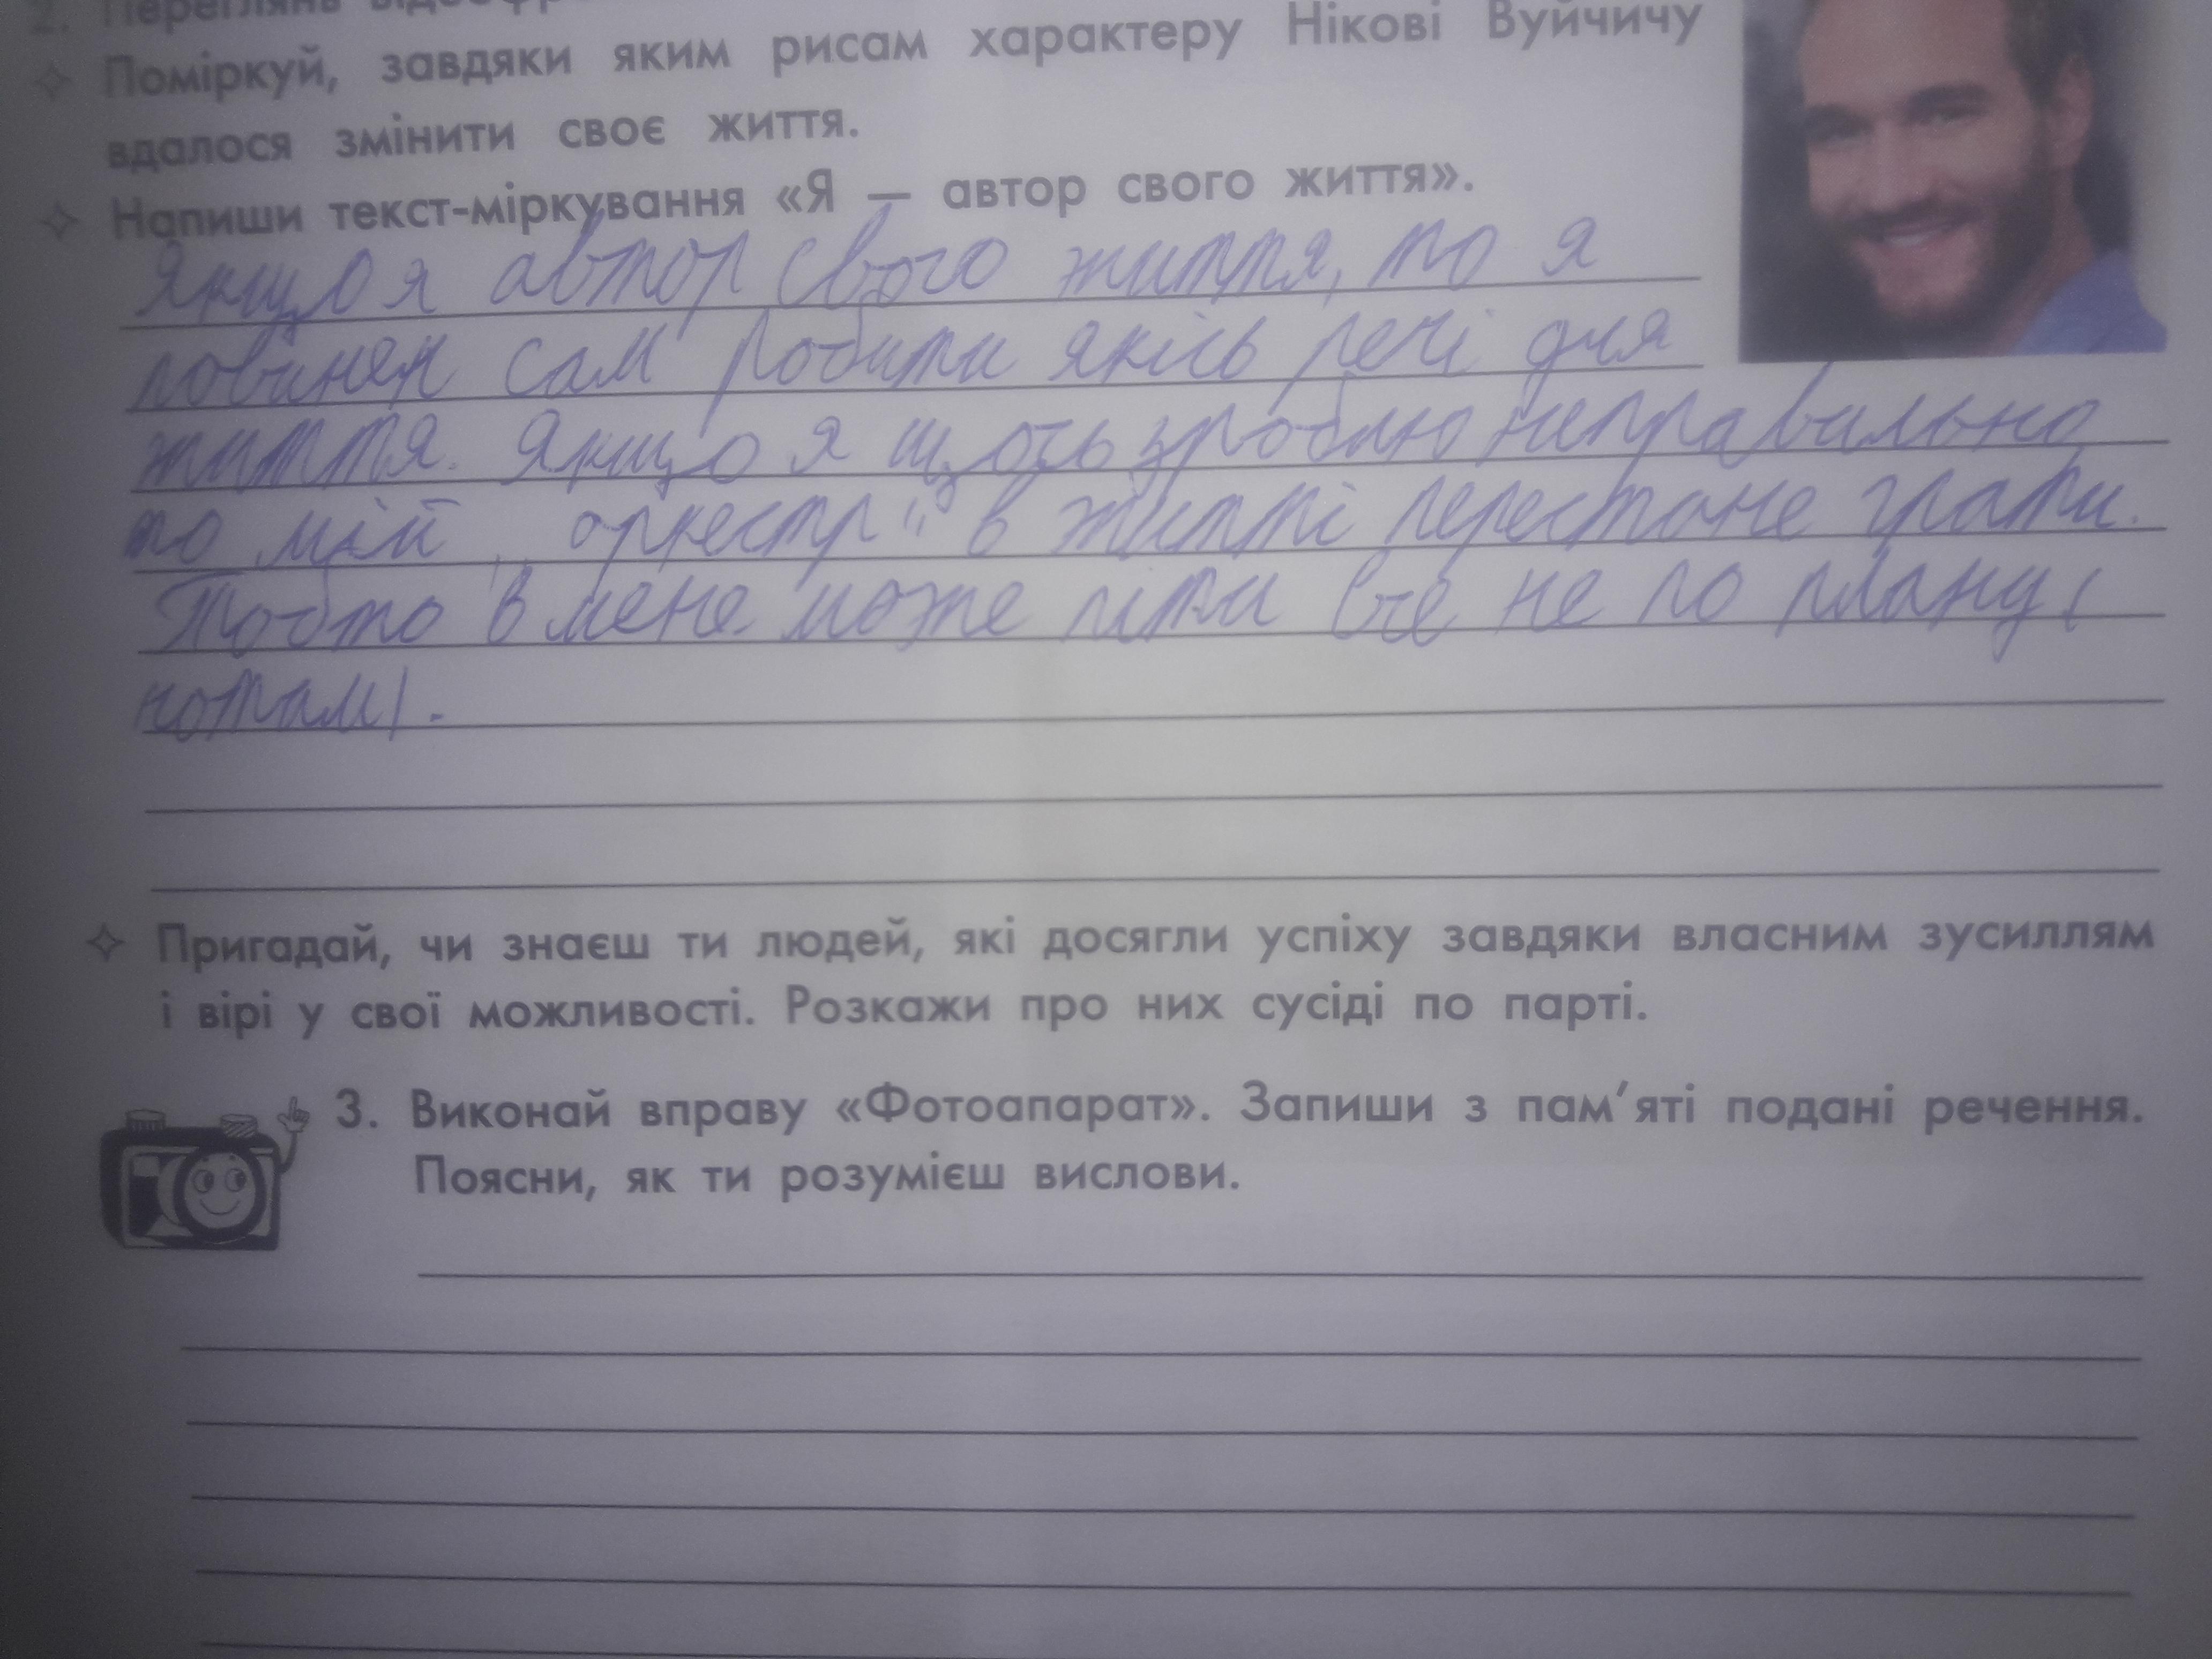 2. Переглянь
Поміркуй, завдяки яким рисам характеру Нікові Вуйчичу
вдалося змінити своє життя.
Напиши текст-міркування «Я — автор свого життя».
Якщо я автор свого життя, то я
повинен сам робити якісь речі для
життя. Якщо я щось зроблю неправильно
то мій „оркестр" в житті перестане грати.
Тобто в мене може піти все не по плану (
нотам).
Пригадай, чи знаєш ти людей, які досягли успіху завдяки власним зусиллям
і вірі у свої можливості. Розкажи про них сусіді по парті.
3. Виконай вправу «Фотоапарат». Запиши з пам'яті подані речення.
Поясни, як ти розумієш вислови.